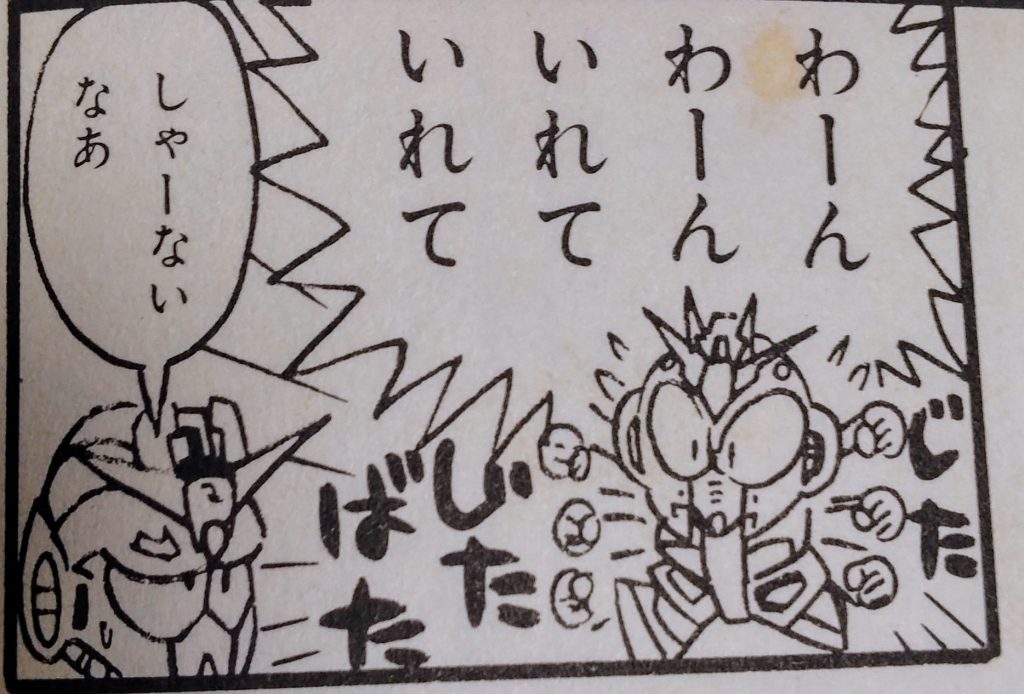 わーん
わーん
いれて
いれて
じた
じた
ばた
しゃーない
なあ